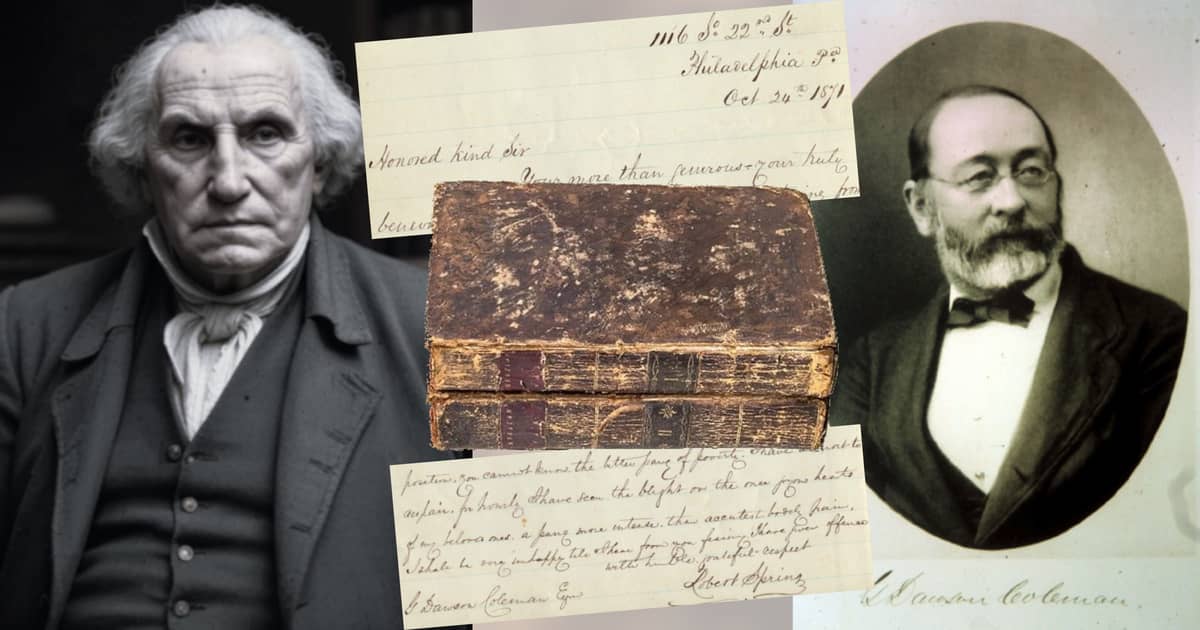 1116 So 22nd St.
Philadelphia Pa
Oct 24th 1871
Honored kind Sir
Your more than generous - your truly
from
position. you cannot know the bitter pang of poverty. I have
repair. for hourly I have seen the blight on the once joyous hearts
of my beloved ones. a pang more intense. than accutest bodily pain.
I shall be very unhappy till I hear from you fearing I have given offence
with humble. grateful respect
Robert Spring
G Dawson Coleman Esqr
G Dawson Coleman.